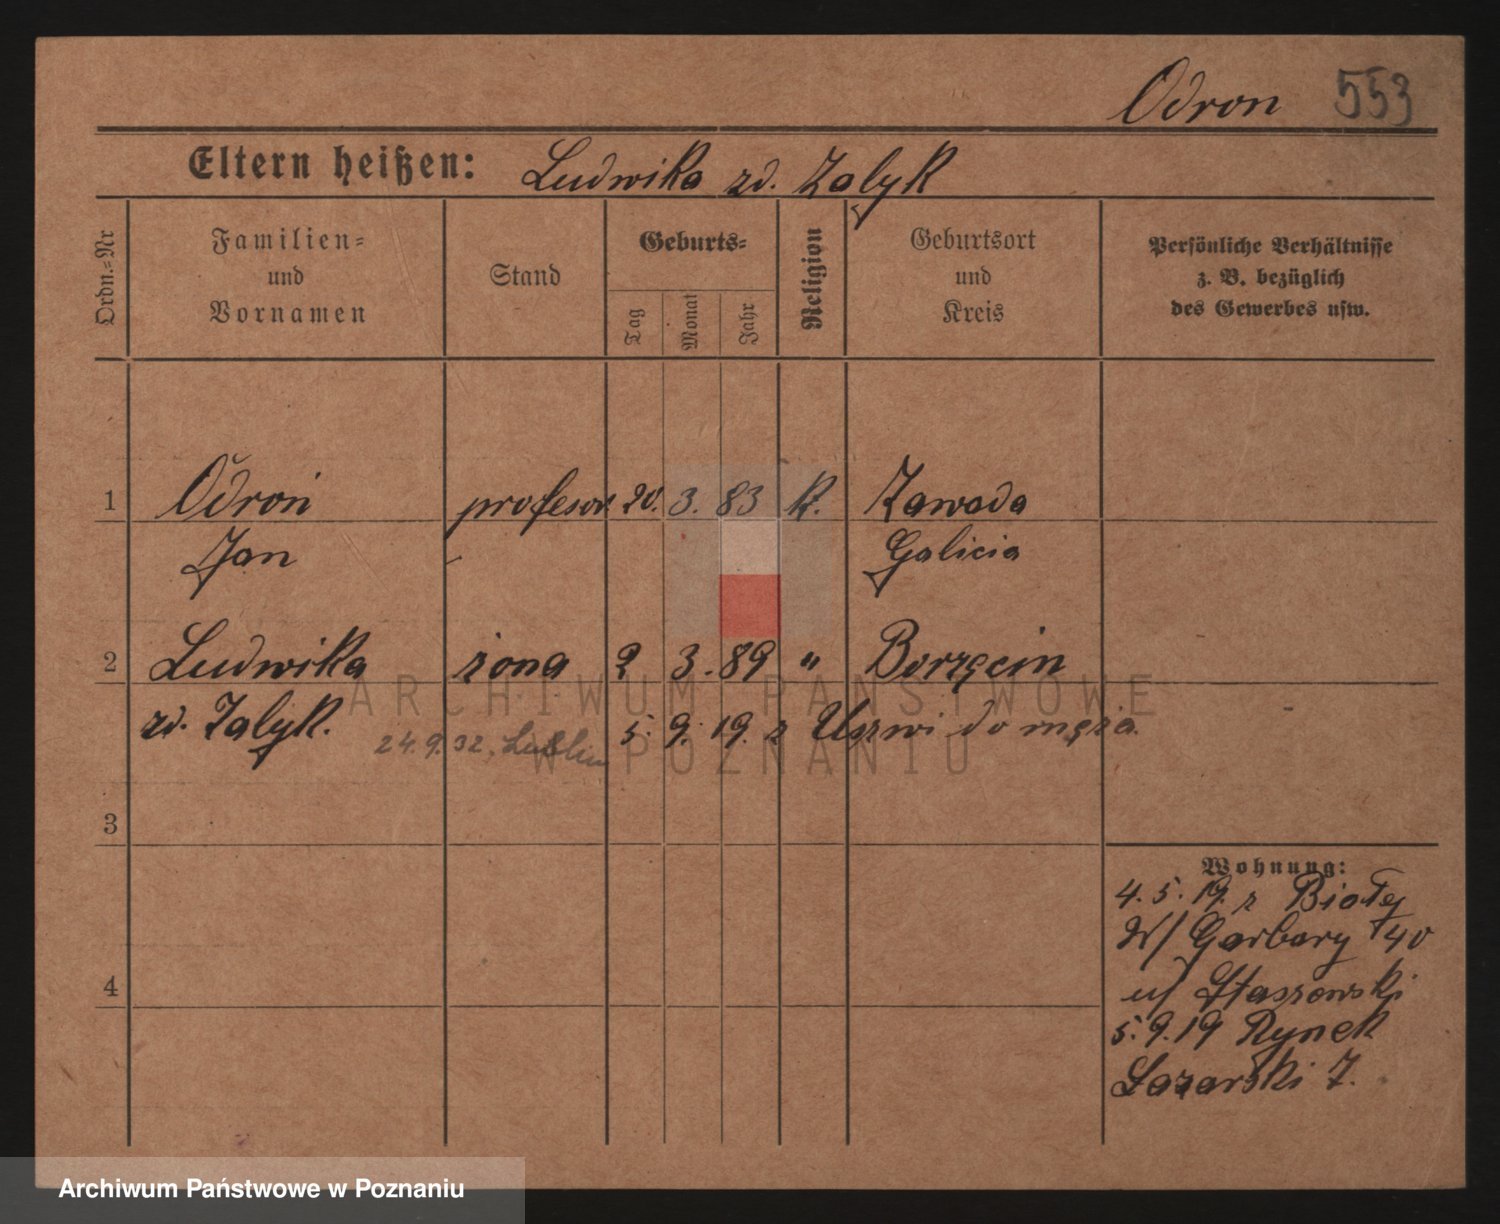 Odron 553
Eltern heißen: Ludwika zd. Zalyk
Ordn.-Nr
Familien-
und
Vornamen
Stand
Geburts-
Tag
Monat
Jahr
Religion
Geburtsort
und
Kreis
Persönliche Verhältnisse
z. B. bezüglich
des Gewerbes usw.
1 Odroń profesor 20. 3. 83 K. Zawada
Jan Galicia
2 Ludwika żona 2 3. 89 " Borzęcin
zd. Zalyk. 5. 9. 19. z Uszwi do męża.
24.9.32. Lublin
ARCHIWUM PAŃSTWOWE
W POZNANIU
3
Wohnung:
4. 5. 19. z Białej
W/ Garbary 40
u/ Staszewski
4
5. 9. 19 Rynek
Łazarski 7.
Archiwum Państwowe w Poznaniu